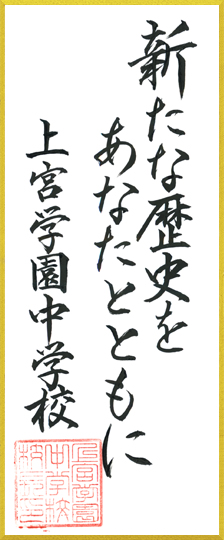 新たな歴史を
あなたとともに
上宮学園中学校